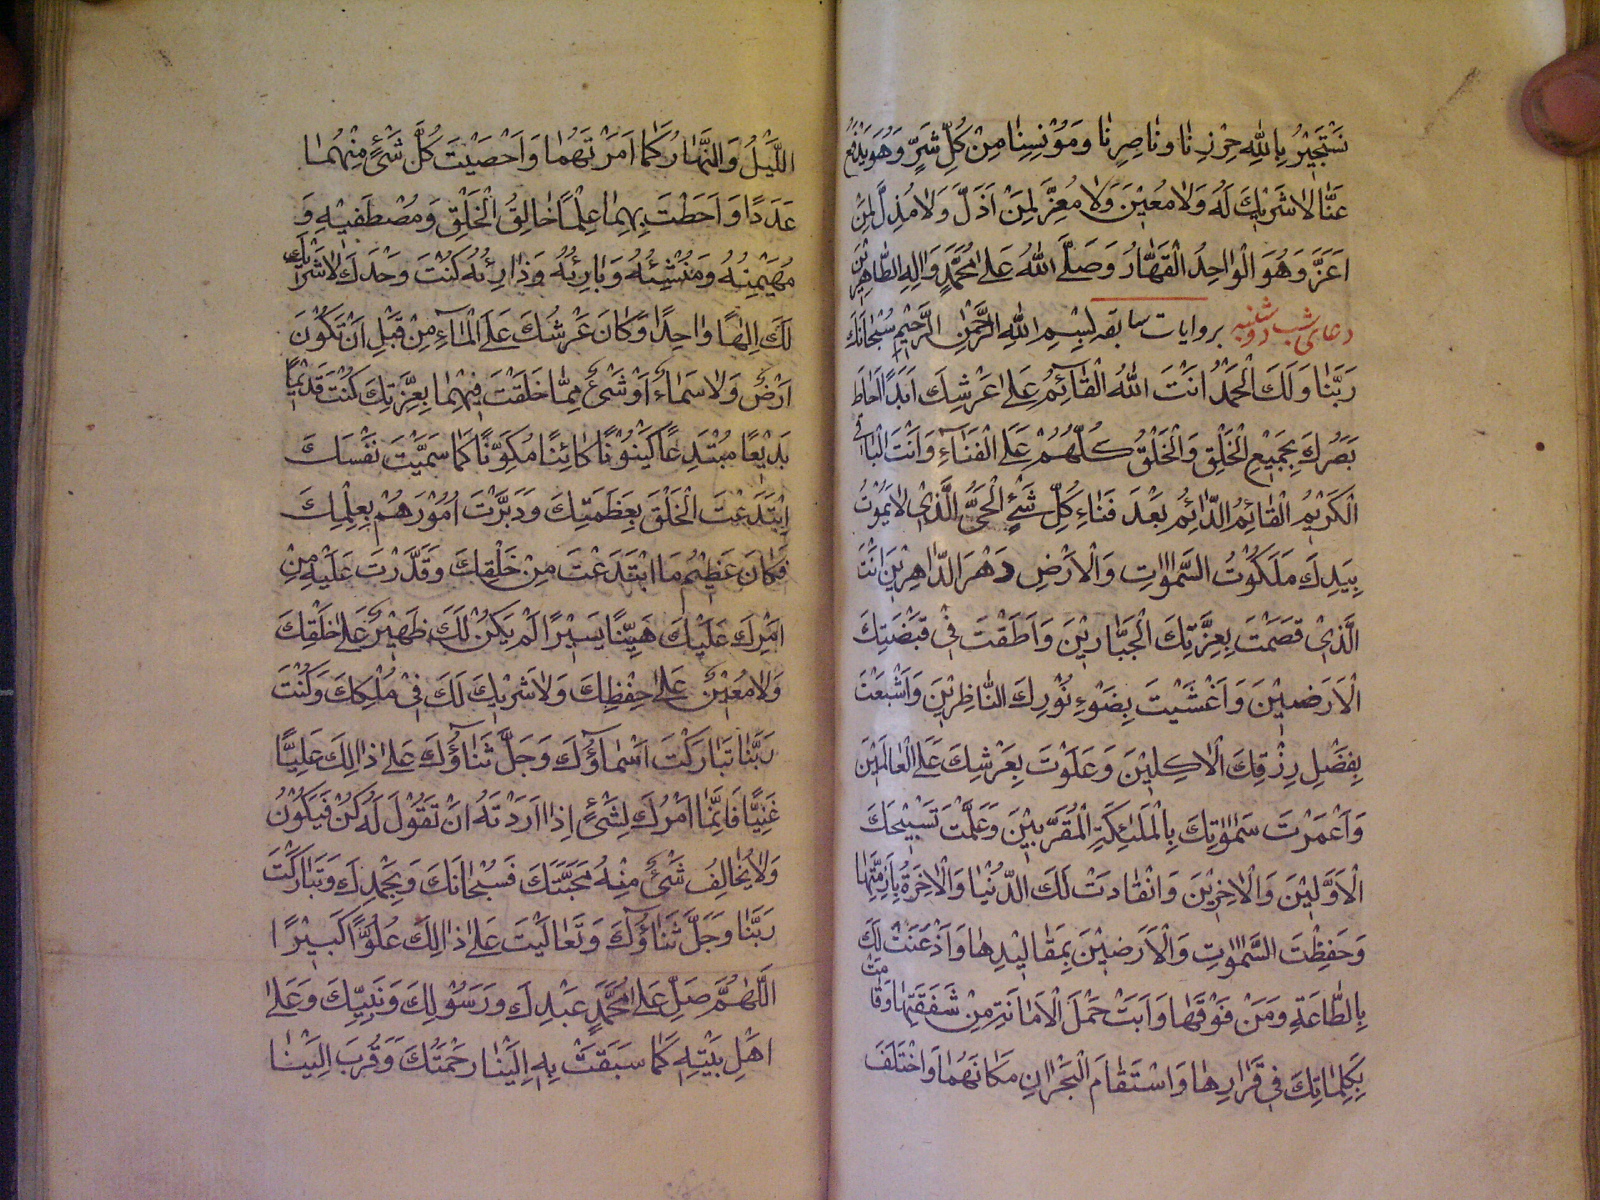 نَسْتَجِيْرُ بِاللّٰهِ حِرْزِنٰا وَنٰاصِرِنٰا وَمُوْنِسِنٰا مِنْ كُلِّ شَرٍّ وَهُوَ يَدْفَعُ
عَنّٰا لاٰ شَرِيْكَ لَهُ وَلاٰ مُعِيْنَ وَلاٰ مُعِزَّ لِمَنْ اَذَلَّ وَلاٰ مُذِلَّ لِمَنْ
اَعَزَّ وَهُوَ الْوٰاحِدُ الْقَهّٰارُ وَصَلَّى اللّٰهُ عَلٰى مُحَمَّدٍ وَاٰلِهِ الطّٰاهِرِيْنَ
دعاى شب دوشنبه بروايات سابقه بِسْمِ اللّٰهِ الرَّحْمٰنِ الرَّحِيْمِ سُبْحٰانَكَ
رَبَّنٰا وَلَكَ الْحَمْدُ اَنْتَ اللّٰهُ الْقٰائِمُ عَلٰى عَرْشِكَ اَبَدًا اَحٰاطَ
بَصَرُكَ بِجَمِيْعِ الْخَلْقِ وَالْخَلْقُ كُلُّهُمْ عَلَى الْفَنٰاءِ وَاَنْتَ الْبٰاقِي
الْكَرِيْمُ الْقٰائِمُ الدّٰائِمُ بَعْدَ فَنٰاءِ كُلِّ شَيْءٍ الْحَيُّ الَّذِيْ لاٰ يَمُوْتُ
بِيَدِكَ مَلَكُوْتُ السَّمٰوٰاتِ وَالْاَرْضِ دَهْرَ الدّٰاهِرِيْنَ اَنْتَ
الَّذِيْ قَصَمْتَ بِعِزَّتِكَ الْجَبّٰارِيْنَ وَاَطَقْتَ فِيْ قَبْضَتِكَ
الْاَرَضِيْنَ وَاَغْشَيْتَ بِضَوْءِ نُوْرِكَ النّٰاظِرِيْنَ وَاَشْبَعْتَ
بِفَضْلِ رِزْقِكَ الْاٰكِلِيْنَ وَعَلَوْتَ بِعَرْشِكَ عَلَى الْعٰالَمِيْنَ
وَاَعْمَرْتَ سَمٰوٰتِكَ بِالْمَلٰئِكَةِ الْمُقَرَّبِيْنَ وَعَلَّمْتَ تَسْبِيْحَكَ
الْاَوَّلِيْنَ وَالْاٰخِرِيْنَ وَانْقٰادَتْ لَكَ الدُّنْيٰا وَالْاٰخِرَةُ بِاَزِمَّتِهٰا
وَحَفِظْتَ السَّمٰوٰاتِ وَالْاَرَضِيْنَ بِمَقٰالِيْدِهٰا وَاَذْعَنَتْ لَكَ
بِالطّٰاعَةِ وَمَنْ فَوْقَهٰا وَاَبَتْ حَمْلَ الْاَمٰانَةِ مِنْ شَفَقَتِهٰا وَقٰامَتْ
بِكَلِمٰاتِكَ فِيْ قَرٰارِهٰا وَاسْتَقٰامَ الْبَحْرٰانِ مَكٰانَهُمٰا وَاخْتَلَفَ
اللَّيْلُ وَالنَّهٰارُ كَمٰا اَمَرْتَهُمٰا وَاَحْصَيْتَ كُلَّ شَيْءٍ مِنْهُمٰا
عَدَدًا وَاَحَطْتَ بِهِمٰا عِلْمًا خٰالِقُ الْخَلْقِ وَمُصْطَفِيْهِ وَ
مُهَيْمِنُهُ وَمُنْشِئُهُ وَبٰارِئُهُ وَذٰارِئُهُ كُنْتَ وَحْدَكَ لاٰ شَرِيْكَ
لَكَ اِلٰهًا وٰاحِدًا وَكٰانَ عَرْشُكَ عَلَى الْمٰاءِ مِنْ قَبْلِ اَنْ تَكُوْنَ
اَرْضٌ وَلاٰ سَمٰاءٌ اَوْ شَيْءٌ مِمّٰا خَلَقْتَ فِيْهِمٰا بِعِزَّتِكَ كُنْتَ قَدِيْمًا
بَدِيْعًا مُبْتَدِعًا كَيْنُوْنًا كٰائِنًا مُكَوِّنًا كَمٰا سَمَّيْتَ نَفْسَكَ
اِبْتَدَعْتَ الْخَلْقَ بِعَظَمَتِكَ وَدَبَّرْتَ اُمُوْرَهُمْ بِعِلْمِكَ
فَكٰانَ عَظِيْمُ مَا ابْتَدَعْتَ مِنْ خَلْقِكَ وَقَدَّرْتَ عَلَيْهِ مِنْ
اَمْرِكَ عَلَيْكَ هَيِّنًا يَسِيْرًا لَمْ يَكُنْ لَكَ ظَهِيْرٌ عَلٰى خَلْقِكَ
وَلاٰ مُعِيْنٌ عَلٰى حِفْظِكَ وَلاٰ شَرِيْكَ لَكَ فِيْ مُلْكِكَ وَكُنْتَ
رَبَّنٰا تَبٰارَكْتَ اَسْمٰاؤُكَ وَجَلَّ ثَنٰاؤُكَ عَلٰى ذٰالِكَ عَلِيًّا
غَنِيًّا فَاِنَّمٰا اَمْرُكَ لِشَيْءٍ اِذٰا اَرَدْتَهُ اَنْ تَقُوْلَ لَهُ كُنْ فَيَكُوْنُ
وَلاٰ يُخٰالِفُ شَيْءٌ مِنْهُ مَحَبَّتَكَ فَسُبْحٰانَكَ وَبِحَمْدِكَ وَتَبٰارَكْتَ
رَبَّنٰا وَجَلَّ ثَنٰاؤُكَ وَتَعٰالَيْتَ عَلٰى ذٰالِكَ عُلُوًّا كَبِيْرًا
اَللّٰهُمَّ صَلِّ عَلٰى مُحَمَّدٍ عَبْدِكَ وَرَسُوْلِكَ وَنَبِيِّكَ وَعَلٰى
اَهْلِ بَيْتِهِ كَمٰا سَبَقَتْ بِهِ اِلَيْنٰا رَحْمَتُكَ وَقَرُبَ اِلَيْنٰا